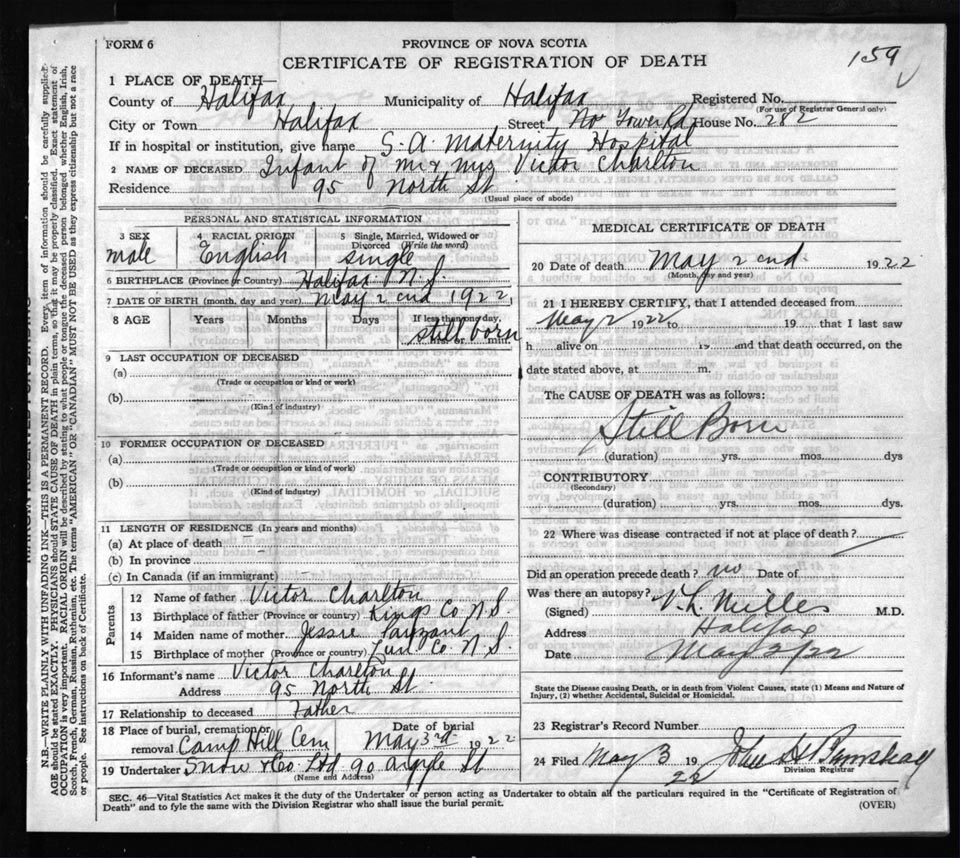 159
FORM 6
PROVINCE OF NOVA SCOTIA
CERTIFICATE OF REGISTRATION OF DEATH
1 PLACE OF DEATH—
County of Halifax Municipality of Halifax Registered No.
(For use of Registrar General only)
City or Town Halifax Street No Tower Rd House No. 282
If in hospital or institution, give name S-A Maternity Hospital
2 NAME OF DECEASED Infant of Mr & Mrs Victor Charlton
Residence 95 North St
(Usual place of abode)
PERSONAL AND STATISTICAL INFORMATION
3 SEX 4 RACIAL ORIGIN 5 Single, Married, Widowed or Divorced (Write the word)
male English single
6 BIRTHPLACE (Province or Country) Halifax N.S.
7 DATE OF BIRTH (month, day and year) May 2 cnd 1922
8 AGE Years Months Days If less than one day,
still born
hrs. or min.
9 LAST OCCUPATION OF DECEASED
(a)
(Trade or occupation or kind or work)
(b)
(Kind of industry)
10 FORMER OCCUPATION OF DECEASED
(a)
(Trade or occupation or kind of work)
(b)
(Kind of industry)
11 LENGTH OF RESIDENCE (In years and months)
(a) At place of death
(b) In province
(c) In Canada (if an immigrant)
Parents
12 Name of father Victor Charlton
13 Birthplace of father (Province or country) Kings Co N.S.
14 Maiden name of mother Jessie
15 Birthplace of mother (Province or country) Lun Co. N.S.
16 Informant's name Victor Charlton
Address 95 North St
17 Relationship to deceased Father
18 Place of burial, cremation or removal Camp Hill Cem Date of burial May 3rd 1922
19 Undertaker Snow & Co Ltd 90 Argyle St
(Name and Address)
MEDICAL CERTIFICATE OF DEATH
20 Date of death May 2 cnd 1922
(Month, day and year)
21 I HEREBY CERTIFY, that I attended deceased from
May 2 1922 to 19 that I last saw
h alive on 19 and that death occurred, on the
date stated above, at m.
The CAUSE OF DEATH was as follows:
Still Born
(duration) yrs. mos. dys
CONTRIBUTORY
(Secondary)
(duration) yrs. mos. dys.
22 Where was disease contracted if not at place of death?
Did an operation precede death? no Date of
Was there an autopsy?
(Signed) V.L. Miller M.D.
Address Halifax
Date May 2/22
State the Disease causing Death, or in death from Violent Causes, state (1) Means and Nature of
Injury, (2) whether Accidental, Suicidal or Homicidal.
23 Registrar's Record Number
24 Filed May 3 1922 John
Division Registrar
SEC. 46—Vital Statistics Act makes it the duty of the Undertaker or person acting as Undertaker to obtain all the particulars required in the "Certificate of Registration of
Death" and to fyle the same with the Division Registrar who shall issue the burial permit.
(OVER)
N.B.—WRITE PLAINLY WITH UNFADING INK—THIS IS A PERMANENT RECORD. Every item of information should be carefully supplied.
AGE should be stated EXACTLY. PHYSICIANS should STATE CAUSE OF DEATH in plain terms, so that it may be properly classified. Exact statement of
OCCUPATION is very important. RACIAL ORIGIN will be described by stating to what people or tongue the deceased person belonged whether English, Irish,
Scotch, French, German, Russian, Ruthenian, etc. The terms "AMERICAN" OR "CANADIAN" MUST NOT BE USED as they express citizenship but not a race
or people. See instructions on back of Certificate.